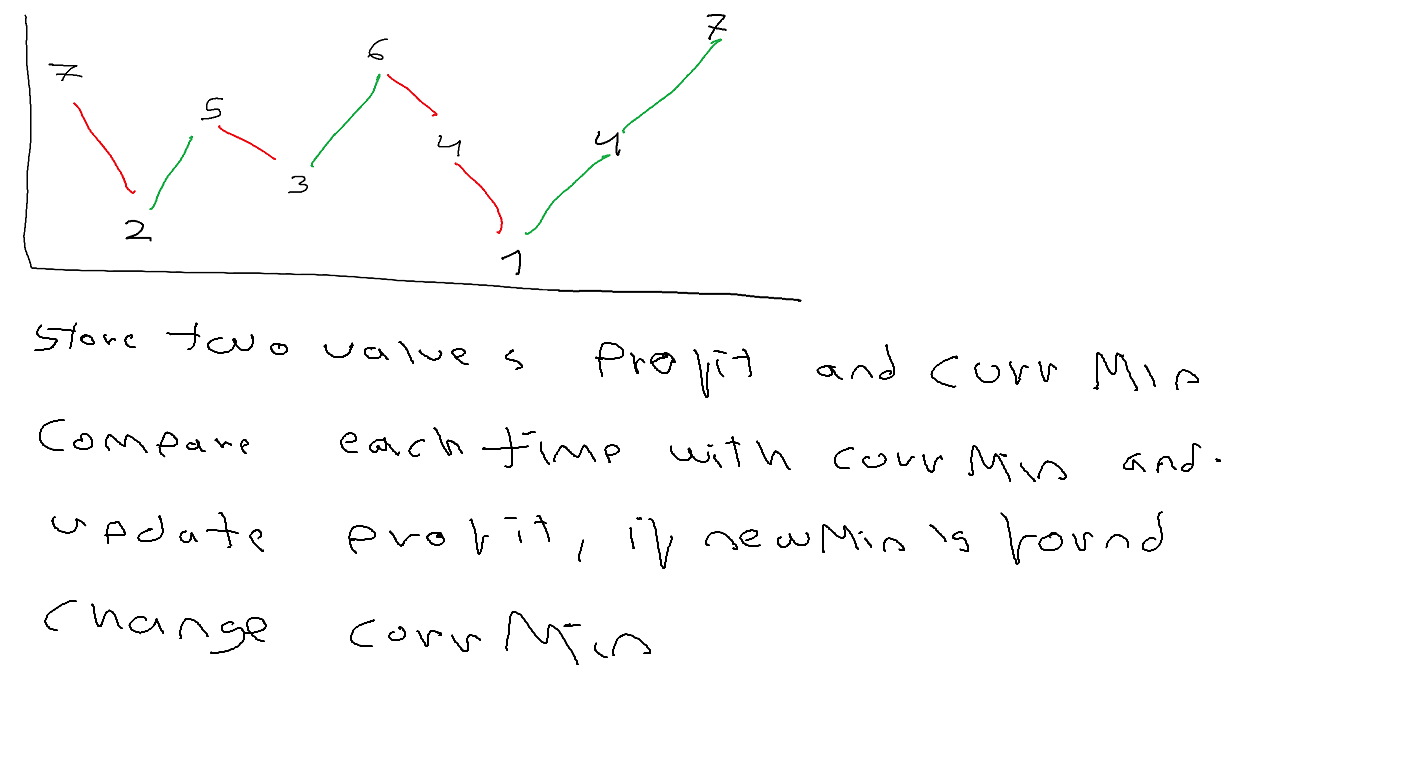 7
6
7
5
4
4
3
2
1
store two values Profit and curr Min
Compare each time with curr Min and.
update profit, if new Min is found
change curr Min